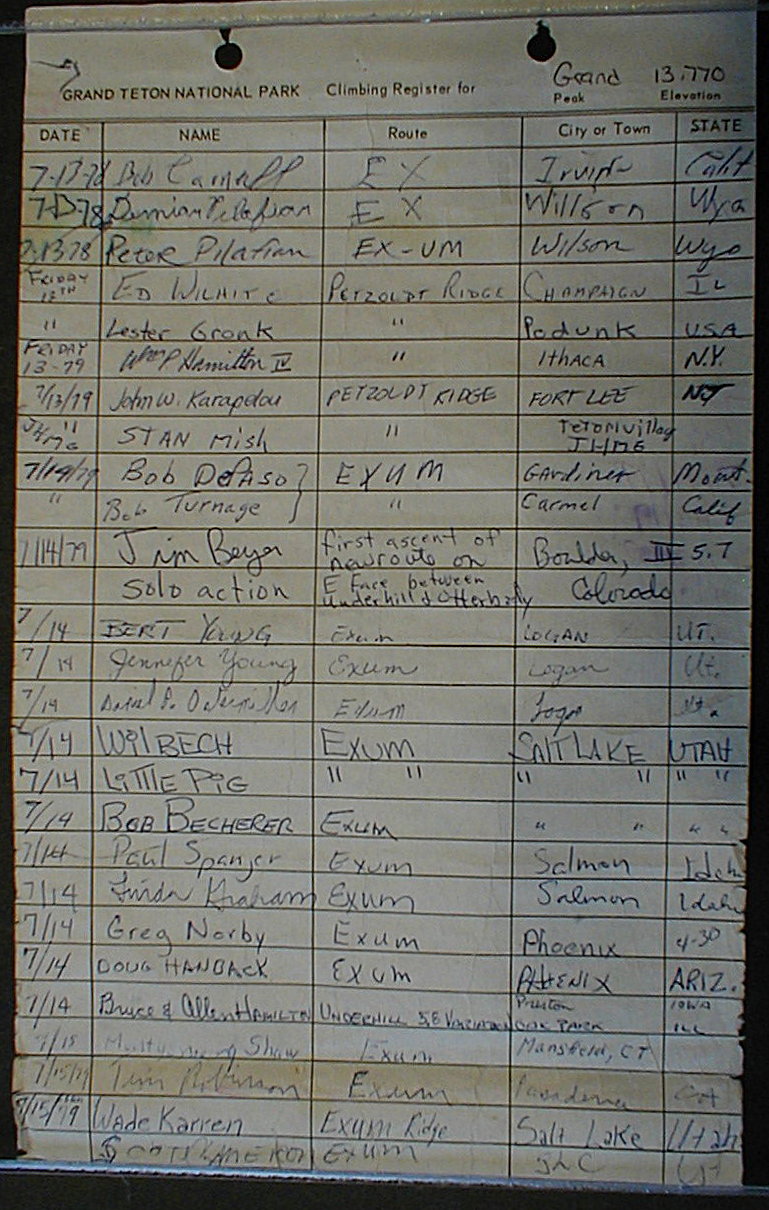 GRAND TETON NATIONAL PARK Climbing Register for Grand 13,770
Peak Elevation
DATE NAME Route City or Town STATE
7-13-78 Bob EX Irvine Calif
7-13-78 Damian Pilafian EX Willson Wyo
7-13-78 Peter Pilafian EX-UM Wilson Wyo
FRIDAY 13TH ED WILHITE PETZOLDT RIDGE CHAMPAIGN IL
" Lester Gronk " Podunk USA
FRIDAY 13-79 Wm P Hamilton IV " ITHACA N.Y.
7/13/79 John W. Karapelou PETZOLDT RIDGE FORT LEE NJ
" STAN Mish " Teton Village
JHMG JHMG
7/14/79 Bob DePaso } EXUM Gardiner Mont.
" Bob Turnage " Carmel Calif
7/14/79 Jim Beyer first ascent of
new route on Boulder, III 5.7
Solo action E Face between
Underhill & Otterbody Colorado
7/14 BERT YOUNG Exum LOGAN UT.
7/14 Jennefer Young Exum Logan Ut.
7/14 Exum Logan Ut.
7/14 Wil BECH EXUM SALT LAKE UTAH
7/14 LITTLE PIG " " " " " "
7/14 BOB BECHERER EXUM " " " "
7/14 Paul Spanger Exum Salmon Idah
7/14 Linda Graham EXUM Salmon Idaho
7/14 Greg Norby Exum Phoenix 4-30
7/14 DOUG HANBACK EXUM PHENIX ARIZ.
7/14 Bruce & Allen HAMILTN UNDERHILL Preston IOWA
OAK PARK ILL
7/15 Shaw Exum Mansfield, CT
7/15/79 Tim Robinson Exum Pasadena
7/15/79 Wade Karren Exum Ridge Salt Lake Utah
EXUM SLC Ut